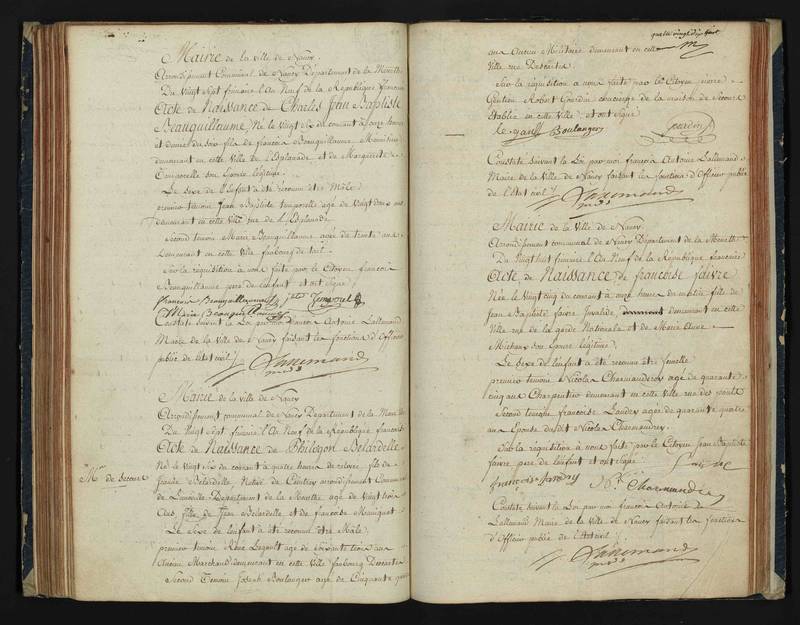 Mairie de la ville de Nancy.
Arrondissement Communal de Nancy Département de la Meurthe
Du Vingt Sept frimaire l'An Neuf de la République française
Acte de Naissance de Charles Jean Baptiste
Beauguillaume, Né le Vingt Six du courant à onze heures
et demie du soir fils de françois Beauguillaume
demeurant en cette Ville de l'Esplanade et de Marguerite
Temporelle son Epouse légitime.
Le Sexe de l'Enfant a été reconnu être Mâle
premier témoin Jean Baptiste temporelle agé de Vingt deux ans
demeurant en cette Ville rue de l'Esplanade
Second témoin Marie Beauguillaume agée de trente ans
demeurant en cette Ville faubourg de
Sur la réquisition à nous faite par le Citoyen françois
Beauguillaume pere de l'enfant et ont signé
françois Beauguillaume
Marie Beauguillaume
Constaté suivant la Loi par moi françois Antoine Lallemand
Maire de la Ville de Nancy faisant les fonctions d'Officier
public de l'état civil
Lallemand
Mairie de la ville de Nancy
Arrondissement communal de Nancy Département de la Meurthe
Du Vingt Sept frimaire l'An Neuf de la République française
Acte de Naissance de Philogon Belardelle
Né le Vingt Six du courant à quatre heures de relevée, fils de
Belardelle Native de arrondissement Communal
de Lunéville Département de la Meurthe agée de Vingt trois
ans, fille de Jean Belardelle et de francoise
Le Sexe de l'enfant a été reconnu être Mâle.
premier témoin Rémi agé de Soixante trois ans
Ancien Marchand demeurant en cette Ville faubourg
Second Témoin Joseph Boulanger agé de Cinquante
Mon de Secours
quatre vingt dix huit
ans Ancien Militaire demeurant en cette
Ville rue Descartes
Sur la réquisition à nous faite par le Citoyen
Robert Gourdin concierge de la maison de Secours
Etablie en cette Ville et ont signé
Boulanger
Constaté suivant la Loi par moi françois Antoine Lallemand
Maire de la Ville de Nancy faisant les fonctions d'Officier public
de l'Etat civil
Lallemand
Mairie de la Ville de Nancy.
Arrondissement communal de Nancy Département de la Meurthe
Du Vingt huit frimaire l'An Neuf de la République francaise
Acte de Naissance de francoise faivre
Née le vingt cinq du courant à onze heures du matin fille de
Jean Baptiste faivre Invalide, demeurant en cette
Ville rue de la garde Nationale et de Marie Anne
Michaux son Epouse légitime.
Le Sexe de l'enfant a été reconnu être femelle
premier témoin Nicolas Charmandrey agé de quarante
cinq ans Charpentier demeurant en cette Ville rue des ponts
Second témoin francoise Landry agée de quarante quatre
ans Epouse dudit Nicolas Charmandrey.
Sur la réquisition à nous faite par le Citoyen Jean Baptiste
faivre, pere de l'enfant et ont signé
Charmandrey
Constaté suivant la Loi par moi francois Antoine
Lallemand Maire de la Ville de Nancy faisant les fonctions
d'Officier public de l'Etat civil
Lallemand